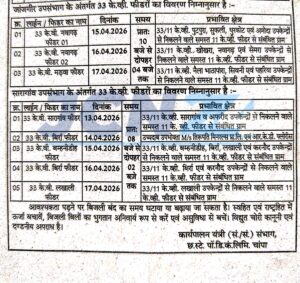 जांजगीर उपसंभाग के अंतर्गत 33 के.व्ही. फीडरों का विवरण निम्नानुसार है :-
क्र. लाईन / फिडर का नाम दिनांक समय प्रभावित क्षेत्र
01 33 के.वी. नवागढ़ फीडर 01 15.04.2026 प्रातः 10 बजे से दोपहर 04 बजे तक 33/11 के.व्ही. पुटपुरा, सुकली, एवं अमोदा उपकेन्द्रों से निकलने वाले समस्त 11 के.व्ही. फीडर से संबंधित ग्राम
02 33 के.वी. नवागढ़ फीडर 02 16.04.2026 33/11 के.व्ही- खोखरा, नवागढ़ एवं सेमरा उपकेन्द्रों से निकलने वाले समस्त 11 के. व्ही. फीडर से संबंधित ग्राम
03 33 के.व्ही. मड़वा फीडर 17.04.2026 33/11 के.व्ही. उपकेन्द्रों से निकलने वाले समस्त 11 के. व्ही. फीडर से संबंधित ग्राम
सारागांव उपसंभाग के अंतर्गत 33 के.व्ही. फीडरों का विवरण निम्नानुसार है :-
क्र. लाईन / फिडर का नाम दिनांक समय प्रभावित क्षेत्र
01 33 के.व्ही. सारागांव फीडर 13.04.2026 प्रातः 08 बजे से दोपहर 02 बजे तक 33/11 के.व्ही. सारागांव व अफरीद उपकेन्द्रों से निकलने वाले समस्त 11 के.व्ही. फीडर से संबंधित ग्राम
02 33 के.व्ही. बिर्रा फीडर 14.04.2026 उच्चदाब उपभोक्ता M/s
03 33 के.व्ही. बम्हनीडीह फीडर 15.04.2026 33/11 के.व्ही. बम्हनीडीह, बिर्रा एवं करनौद उपकेन्द्रों से निकलने वाले समस्त 11 के.व्ही. फीडर से संबंधित ग्राम
04 33 के.व्ही. बिर्रा फीडर 16.04.2026 33/11 के.व्ही. बिर्रा एवं करनौद उपकेन्द्रों से निकलने वाले समस्त 11 के. व्ही. फीडर से संबंधित ग्राम
05 33 के.व्ही. लखाली फीडर 17.04.2026 33/11 के.व्ही. लखाली उपकेन्द्रों से निकलने वाले समस्त 11 के.व्ही. फीडर से संबंधित ग्राम
आवश्यकता पड़ने पर बिजली बंद का समय घटाया या बढ़ाया जा सकता है। स्वहित एवं राष्ट्रहित में
ऊर्जा बचायें, बिजली बिलों का भुगतान अनिवार्य रूप से करें एवं असुविधा से बचें। विद्युत चोरी कानूनी एवं
दण्डनीय अपराध है।
कार्यपालन यंत्री (सं./सं.) संभाग,
छ.स्टे. पॉ.डि.कं.लिमि. चांपा